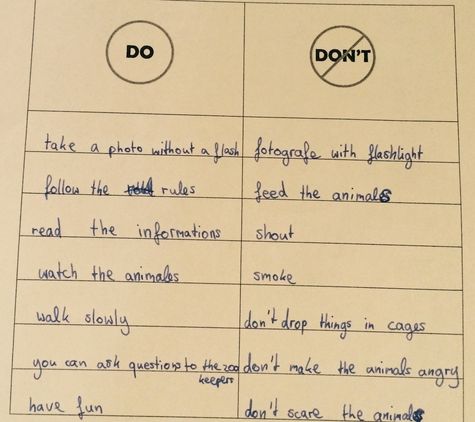 DO DON'T
take a photo without a flash fotografe with flashlight
follow the rules feed the animals
read the informations shout
watch the animales smoke
walk slowly don't drop things in cages
you can ask questions to the zoo don't make the animals angry
keepers
have fun don't scare the animals